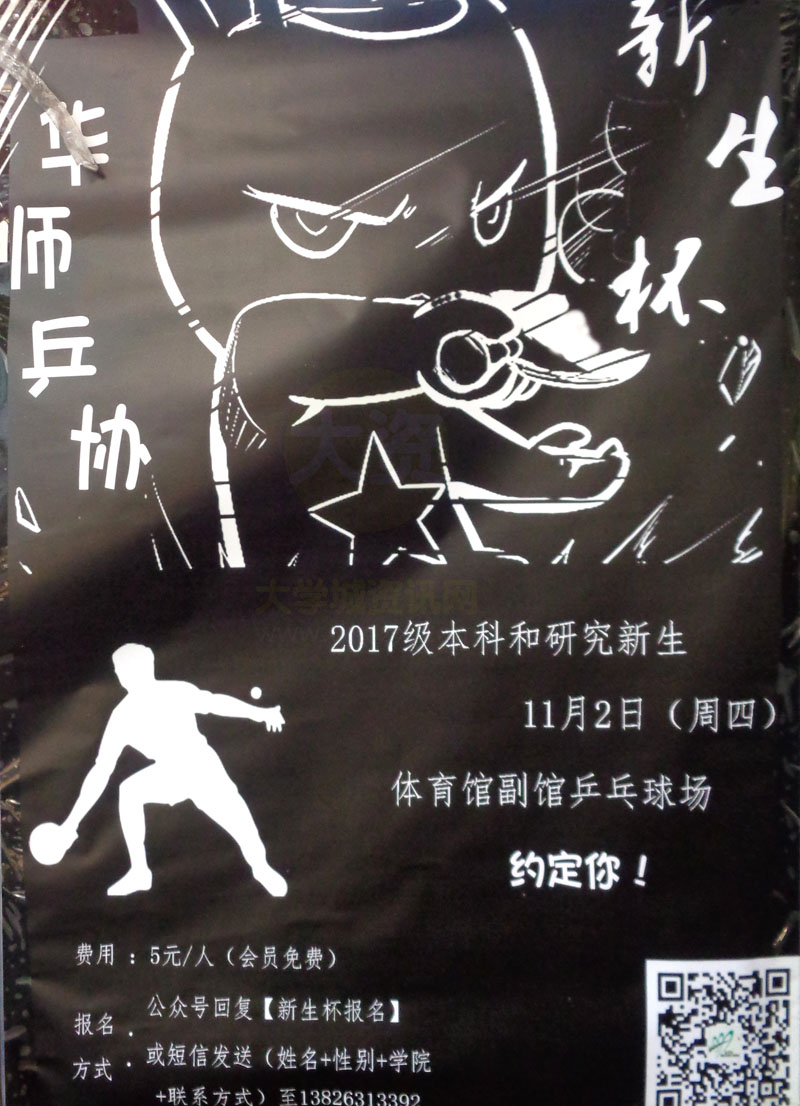 新生杯
华师乒协
大资
大学城资讯网
2017级本科和研究新生
11月2日（周四）
体育馆副馆乒乓球场
约定你！
费用：5元/人（会员免费）
报名方式：
公众号回复【新生杯报名】
或短信发送（姓名+性别+学院
+联系方式）至13826313392